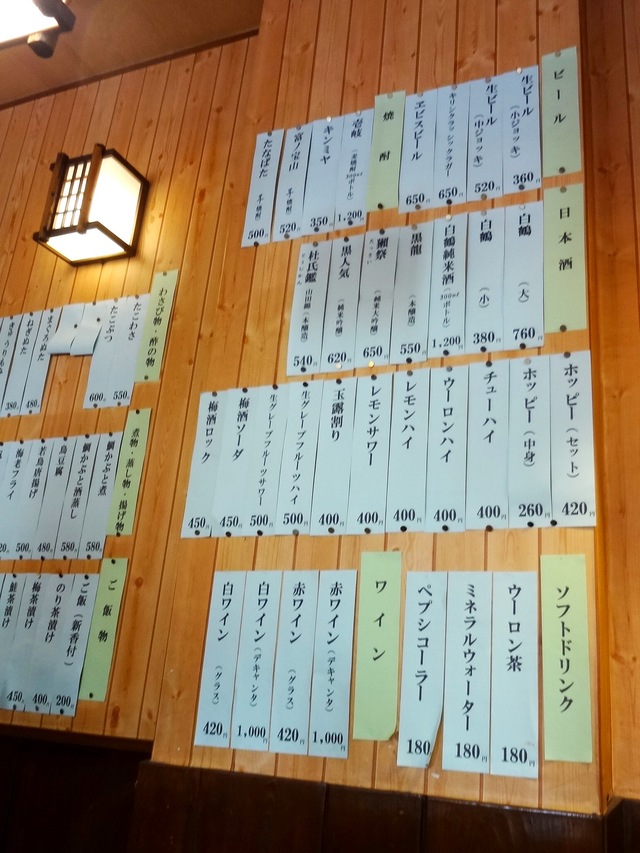 ビール
生ビール (小ジョッキ) 360円
生ビール (中ジョッキ) 520円
キリンクラシックラガー 650円
ヱビスビール 650円
焼酎
壱岐 (麦焼酎 300mlボトル) 1,200円
キンミヤ 350円
富ノ宝山 (芋焼酎) 520円
たなばた (芋焼酎) 500円
日本酒
白鶴 (大) 760円
白鶴 (小) 380円
白鶴純米酒 (300mlボトル) 1,200円
黒龍 (本醸造) 550円
獺祭 だっさい (純米大吟醸) 650円
黒人気 (純米吟醸) 620円
杜氏鑑 山田錦 (本醸造) 540円
ホッピー (セット) 420円
ホッピー (中身) 260円
チューハイ 400円
ウーロンハイ 400円
レモンハイ 400円
レモンサワー 400円
玉露割り 400円
生グレープフルーツハイ 500円
生グレープフルーツサワー 500円
梅酒ソーダ 450円
梅酒ロック 450円
ソフトドリンク
ウーロン茶 180円
ミネラルウォーター 180円
ペプシコーラー 180
ワイン
赤ワイン (デキャンタ) 1,000円
赤ワイン (グラス) 420円
白ワイン (デキャンタ) 1,000円
白ワイン (グラス) 420円
わさび物・酢の物
たこわさ 550円
たこぶつ 600円
ねぎぬた 480円
380円
煮物・蒸し物・揚げ物
鯛かぶと煮 580円
鯛かぶと酒蒸し 580円
鳥豆腐 480円
若鳥唐揚げ 500円
海老フライ
ご飯物
ご飯 (新香付) 200円
のり茶漬け 400円
梅茶漬け 450円
鮭茶漬け